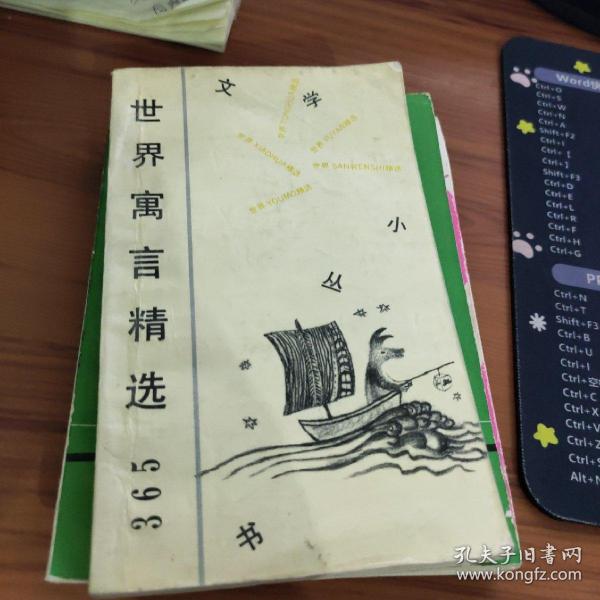 世界寓言精选 365
文学小丛书
世界 XIAOHUA精选
世界 YUYAN精选
世界 SANWENSHI精选
世界 YOUMO精选
Word快
Ctrl+O
Ctrl+S
Ctrl+W
Ctrl+N
Ctrl+A
Shift+F2
Ctrl+I
Ctrl+ [
Ctrl+ ]
Shift+F3
Ctrl+D
Ctrl+E
Ctrl+L
Ctrl+R
Ctrl+F
Ctrl+H
Ctrl+G
PP
Ctrl+N
Ctrl+T
Shift+F3
Ctrl+B
Ctrl+U
Ctrl+I
Ctrl+空
Ctrl+C
Ctrl+X
Ctrl+V
Ctrl+Z
Ctrl+S
Alt+N
孔夫子旧书网
www.kongfz.com